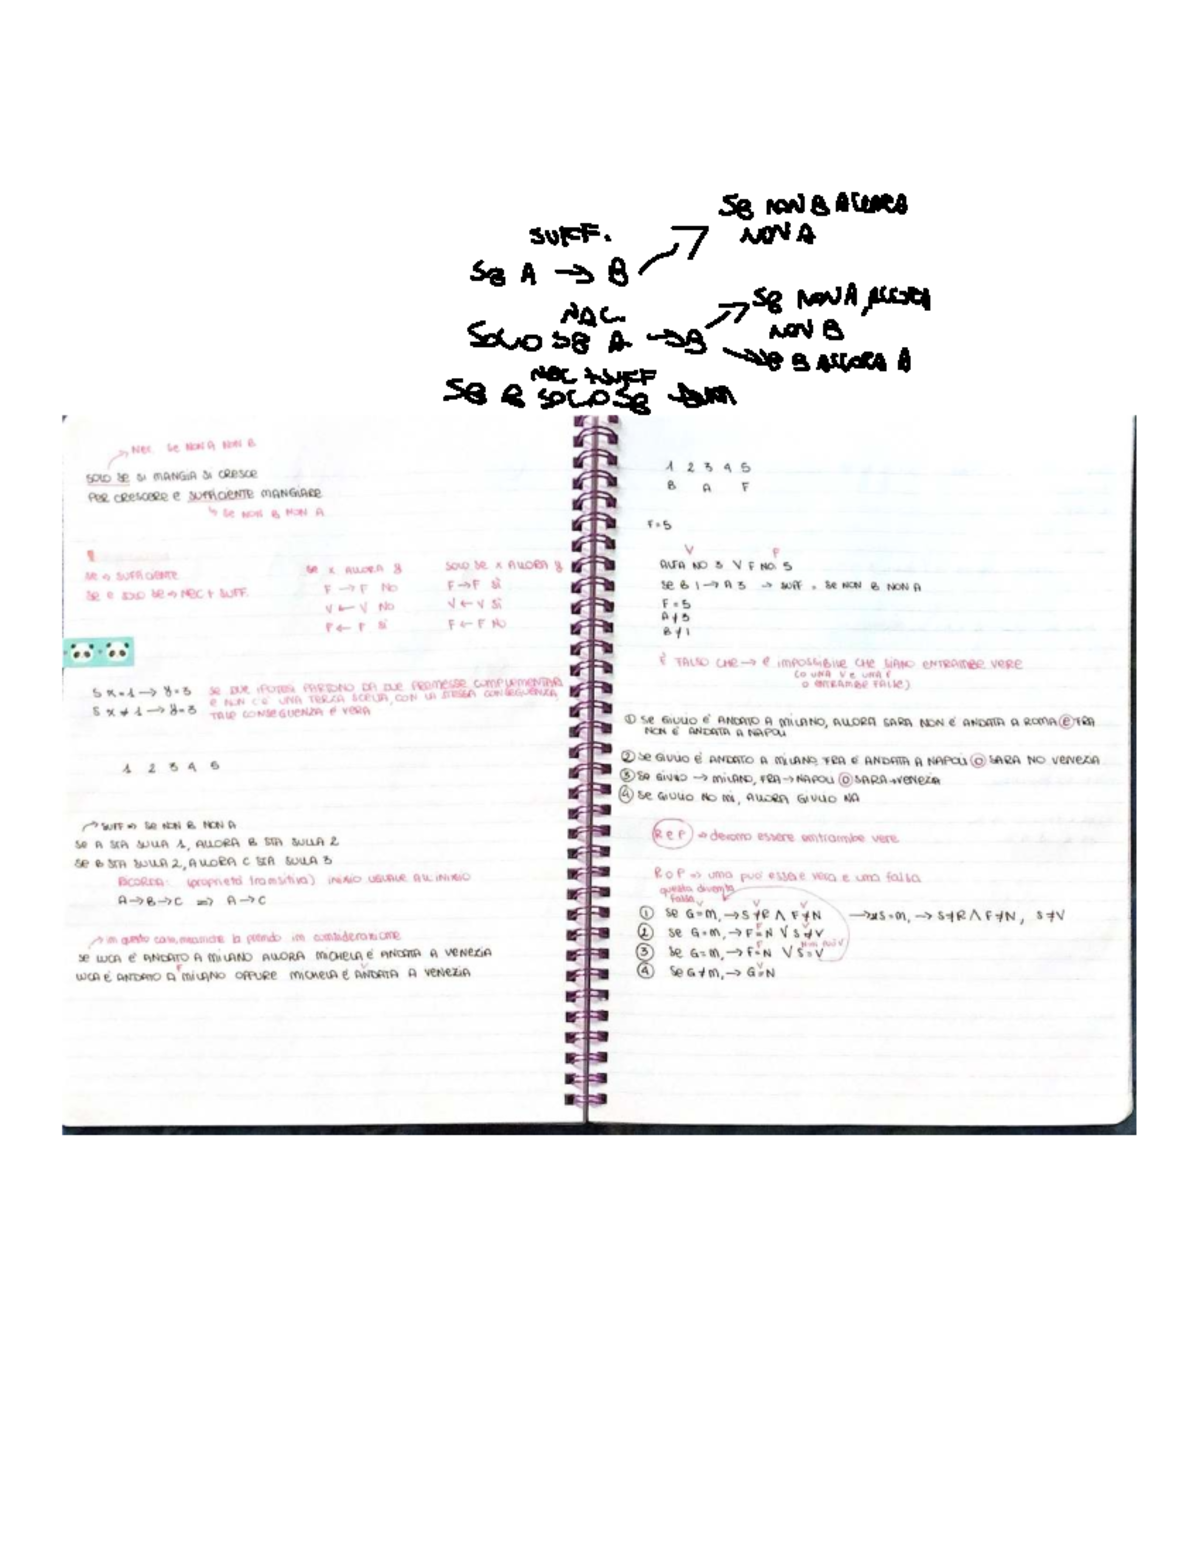 SUFF.
SE A → B
SE NON B ALLORA
NON A
NEC.
SOLO SE A → B
SE NON A, ALLORA
NON B
SE B ALLORA A
NEC + SUFF
SE E SOLO SE
NEC. SE NON A NON B
SOLO SE SI MANGIA SI CRESCE
PER CRESCERE E SUFFICIENTE MANGIARE
SE NON B NON A
SE → SUFFICIENTE
SE E SOLO SE → NEC + SUFF.
SE X ALLORA Y
F → F NO
V ← V NO
F ← F SI
SOLO SE X ALLORA Y
F → F SI
V ← V SI
F ← F NO
S X = 1 → Y = 3
S X ≠ 1 → Y = 3
SE DUE IPOTESI PARTONO DA DUE PREMESSE COMPLEMENTARI
E NON C'È UNA TERZA SCELTA, CON LA STESSA CONSEGUENZA,
TALE CONSEGUENZA È VERA
1 2 3 4 5
SUFF ⇒ SE NON B NON A
SE A STA SULLA 1, ALLORA B STA SULLA 2
SE B STA SULLA 2, ALLORA C STA SULLA 3
RICORDA: (proprietà transitiva) INIZIO USUALE ALL'INIZIO
A → B → C ⇒ A → C
in questo caso, la prendo in considerazione
SE LUCA È ANDATO A MILANO ALLORA MICHELA È ANDATA A VENEZIA
F V
LUCA È ANDATO A MILANO OPPURE MICHELA È ANDATA A VENEZIA
1 2 3 4 5
B A F
F = 5
V F
ALFA NO 3 V F NO. 5
SE B 1 → A 3 → SUFF = SE NON B NON A
F = 5
A ≠ 3
B ≠ 1
È FALSO CHE → È IMPOSSIBILE CHE SIANO ENTRAMBE VERE
(O UNA V E UNA F
O ENTRAMBE FALSE)
① SE GIULIO È ANDATO A MILANO, ALLORA SARA NON È ANDATA A ROMA E FRA
NON È ANDATA A NAPOLI
② SE GIULIO È ANDATO A MILANO, FRA È ANDATA A NAPOLI O SARA NO VENEZIA
③ SE GIULIO → MILANO, FRA → NAPOLI O SARA → VENEZIA
④ SE GIULIO NO MI, ALLORA GIULIO NA
P e P → devono essere entrambe vere
P o P ⇒ una può essere vera e una falsa
questa diventa
falsa
① SE G = M, → S ≠ R Λ F ≠ N → S = M, → S ≠ R Λ F ≠ N, S ≠ V
② SE G = M, → F = N V S ≠ V
③ SE G = M, → F = N V S = V
④ SE G ≠ M, → G = N